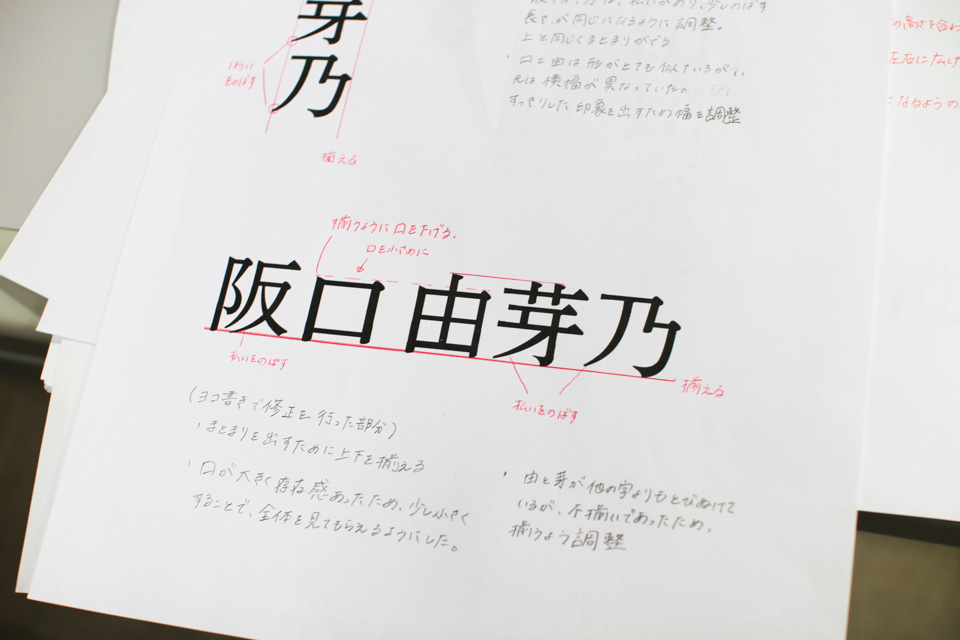 芽
乃
はらい
をのばす
揃える
長さが同じになるように調整。
上と同じくまとまりがでる
・口と由は形がとても似ているが、
元は横幅が異なっていた。
すっきりした印象を出すため幅を調整
の高さを合わ
左右に広げ
になるようの
揃うように口を下げる。
口を小さめに
阪口 由芽乃
払いをのばす
払いをのばす
揃える
(ヨコ書きで修正を行った部分)
・まとまりを出すために上下を揃える
・口が大きく存在感あったため、少し小さく
することで、全体を見てもらえるようにした。
・由と芽が他の字よりもとびぬけて
いるが、不揃いであったため、
揃うよう調整